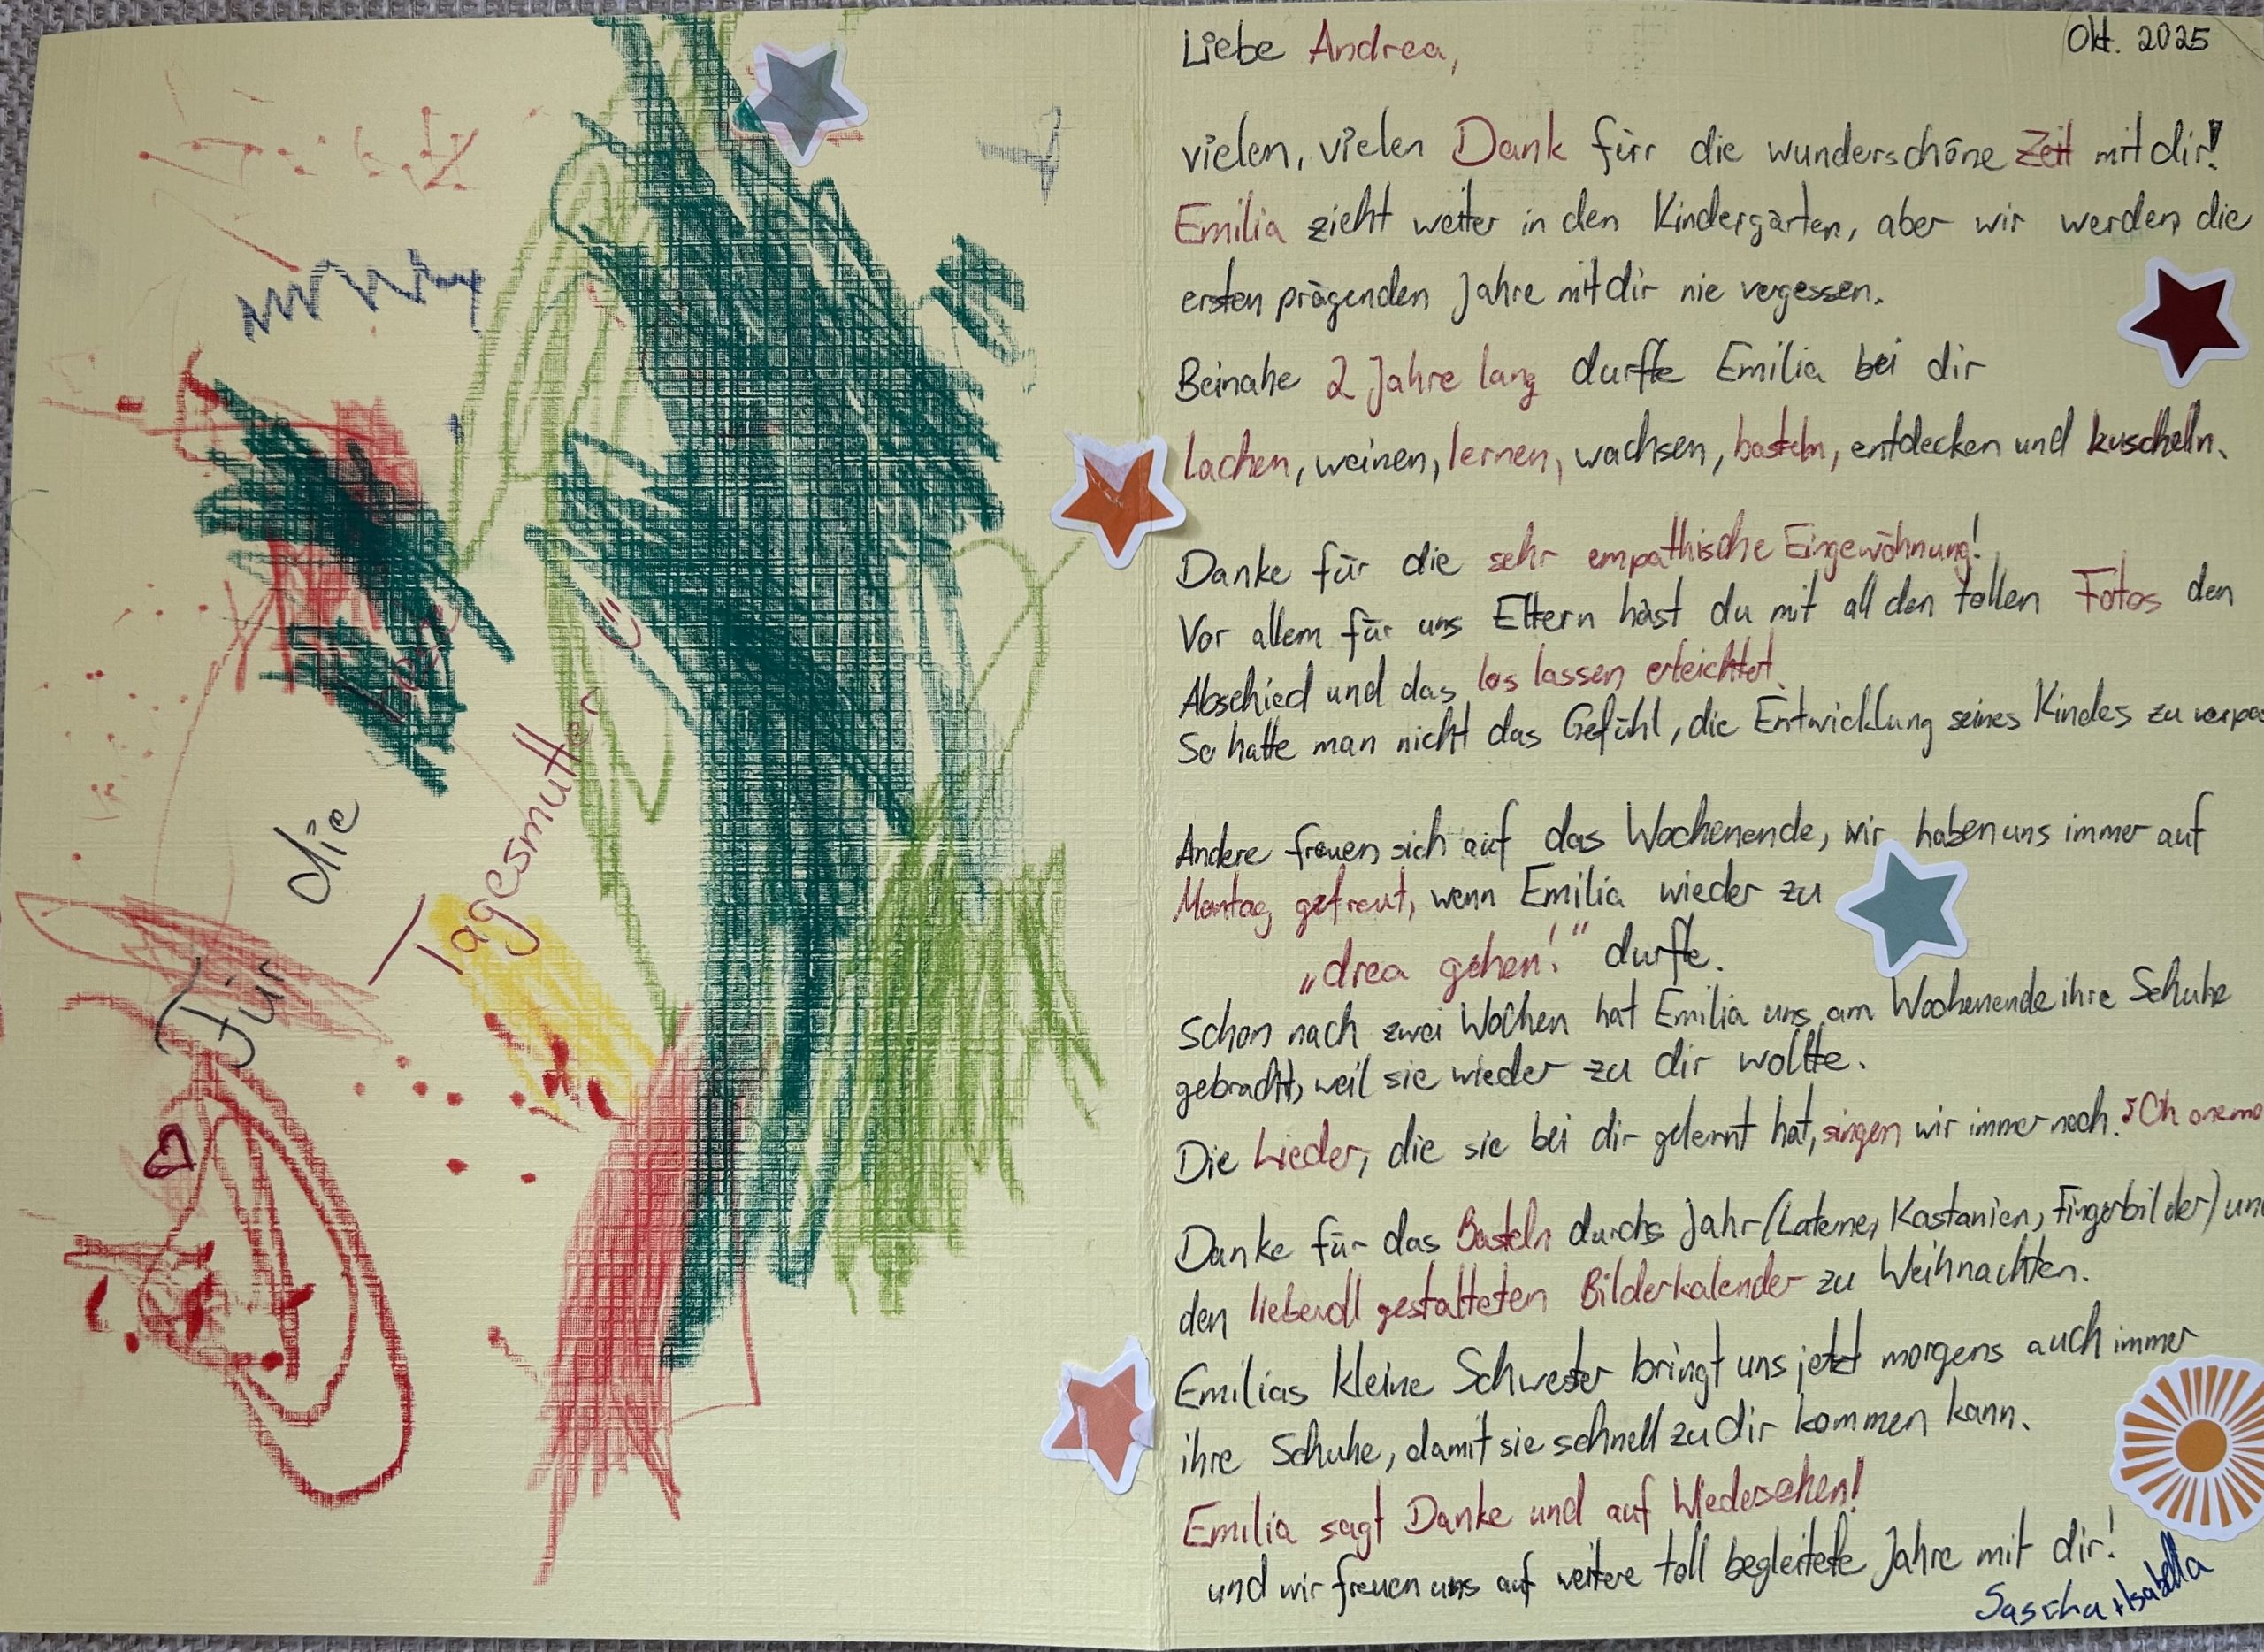 Für die beste Tagesmutter
Okt. 2025
Liebe Andrea,
vielen, vielen Dank für die wunderschöne Zeit mit dir!
Emilia zieht weiter in den Kindergarten, aber wir werden die
ersten prägenden Jahre mit dir nie vergessen.
Beinahe 2 Jahre lang durfte Emilia bei dir
lachen, weinen, lernen, wachsen, basteln, entdecken und kuscheln.
Danke für die sehr empathische Eingewöhnung!
Vor allem für uns Eltern hast du mit all den tollen Fotos den
Abschied und das los lassen erleichtert.
So hatte man nicht das Gefühl, die Entwicklung seines Kindes zu verpas
Andere freuen sich auf das Wochenende, wir haben uns immer auf
Montag gefreut, wenn Emilia wieder zu
„drea gehen!“ durfte.
Schon nach zwei Wochen hat Emilia uns am Wochenende ihre Schuhe
gebracht, weil sie wieder zu dir wollte.
Die Lieder, die sie bei dir gelernt hat, singen wir immer noch.
Danke für das Basteln durchs Jahr (Laterne, Kastanien, Fingerbilder) und
den liebevoll gestalteten Bilderkalender zu Weihnachten.
Emilias kleine Schwester bringt uns jetzt morgens auch immer
ihre Schuhe, damit sie schnell zu dir kommen kann.
Emilia sagt Danke und auf Wiedersehen!
und wir freuen uns auf weitere toll begleitete Jahre mit dir!
Sascha + Isabella